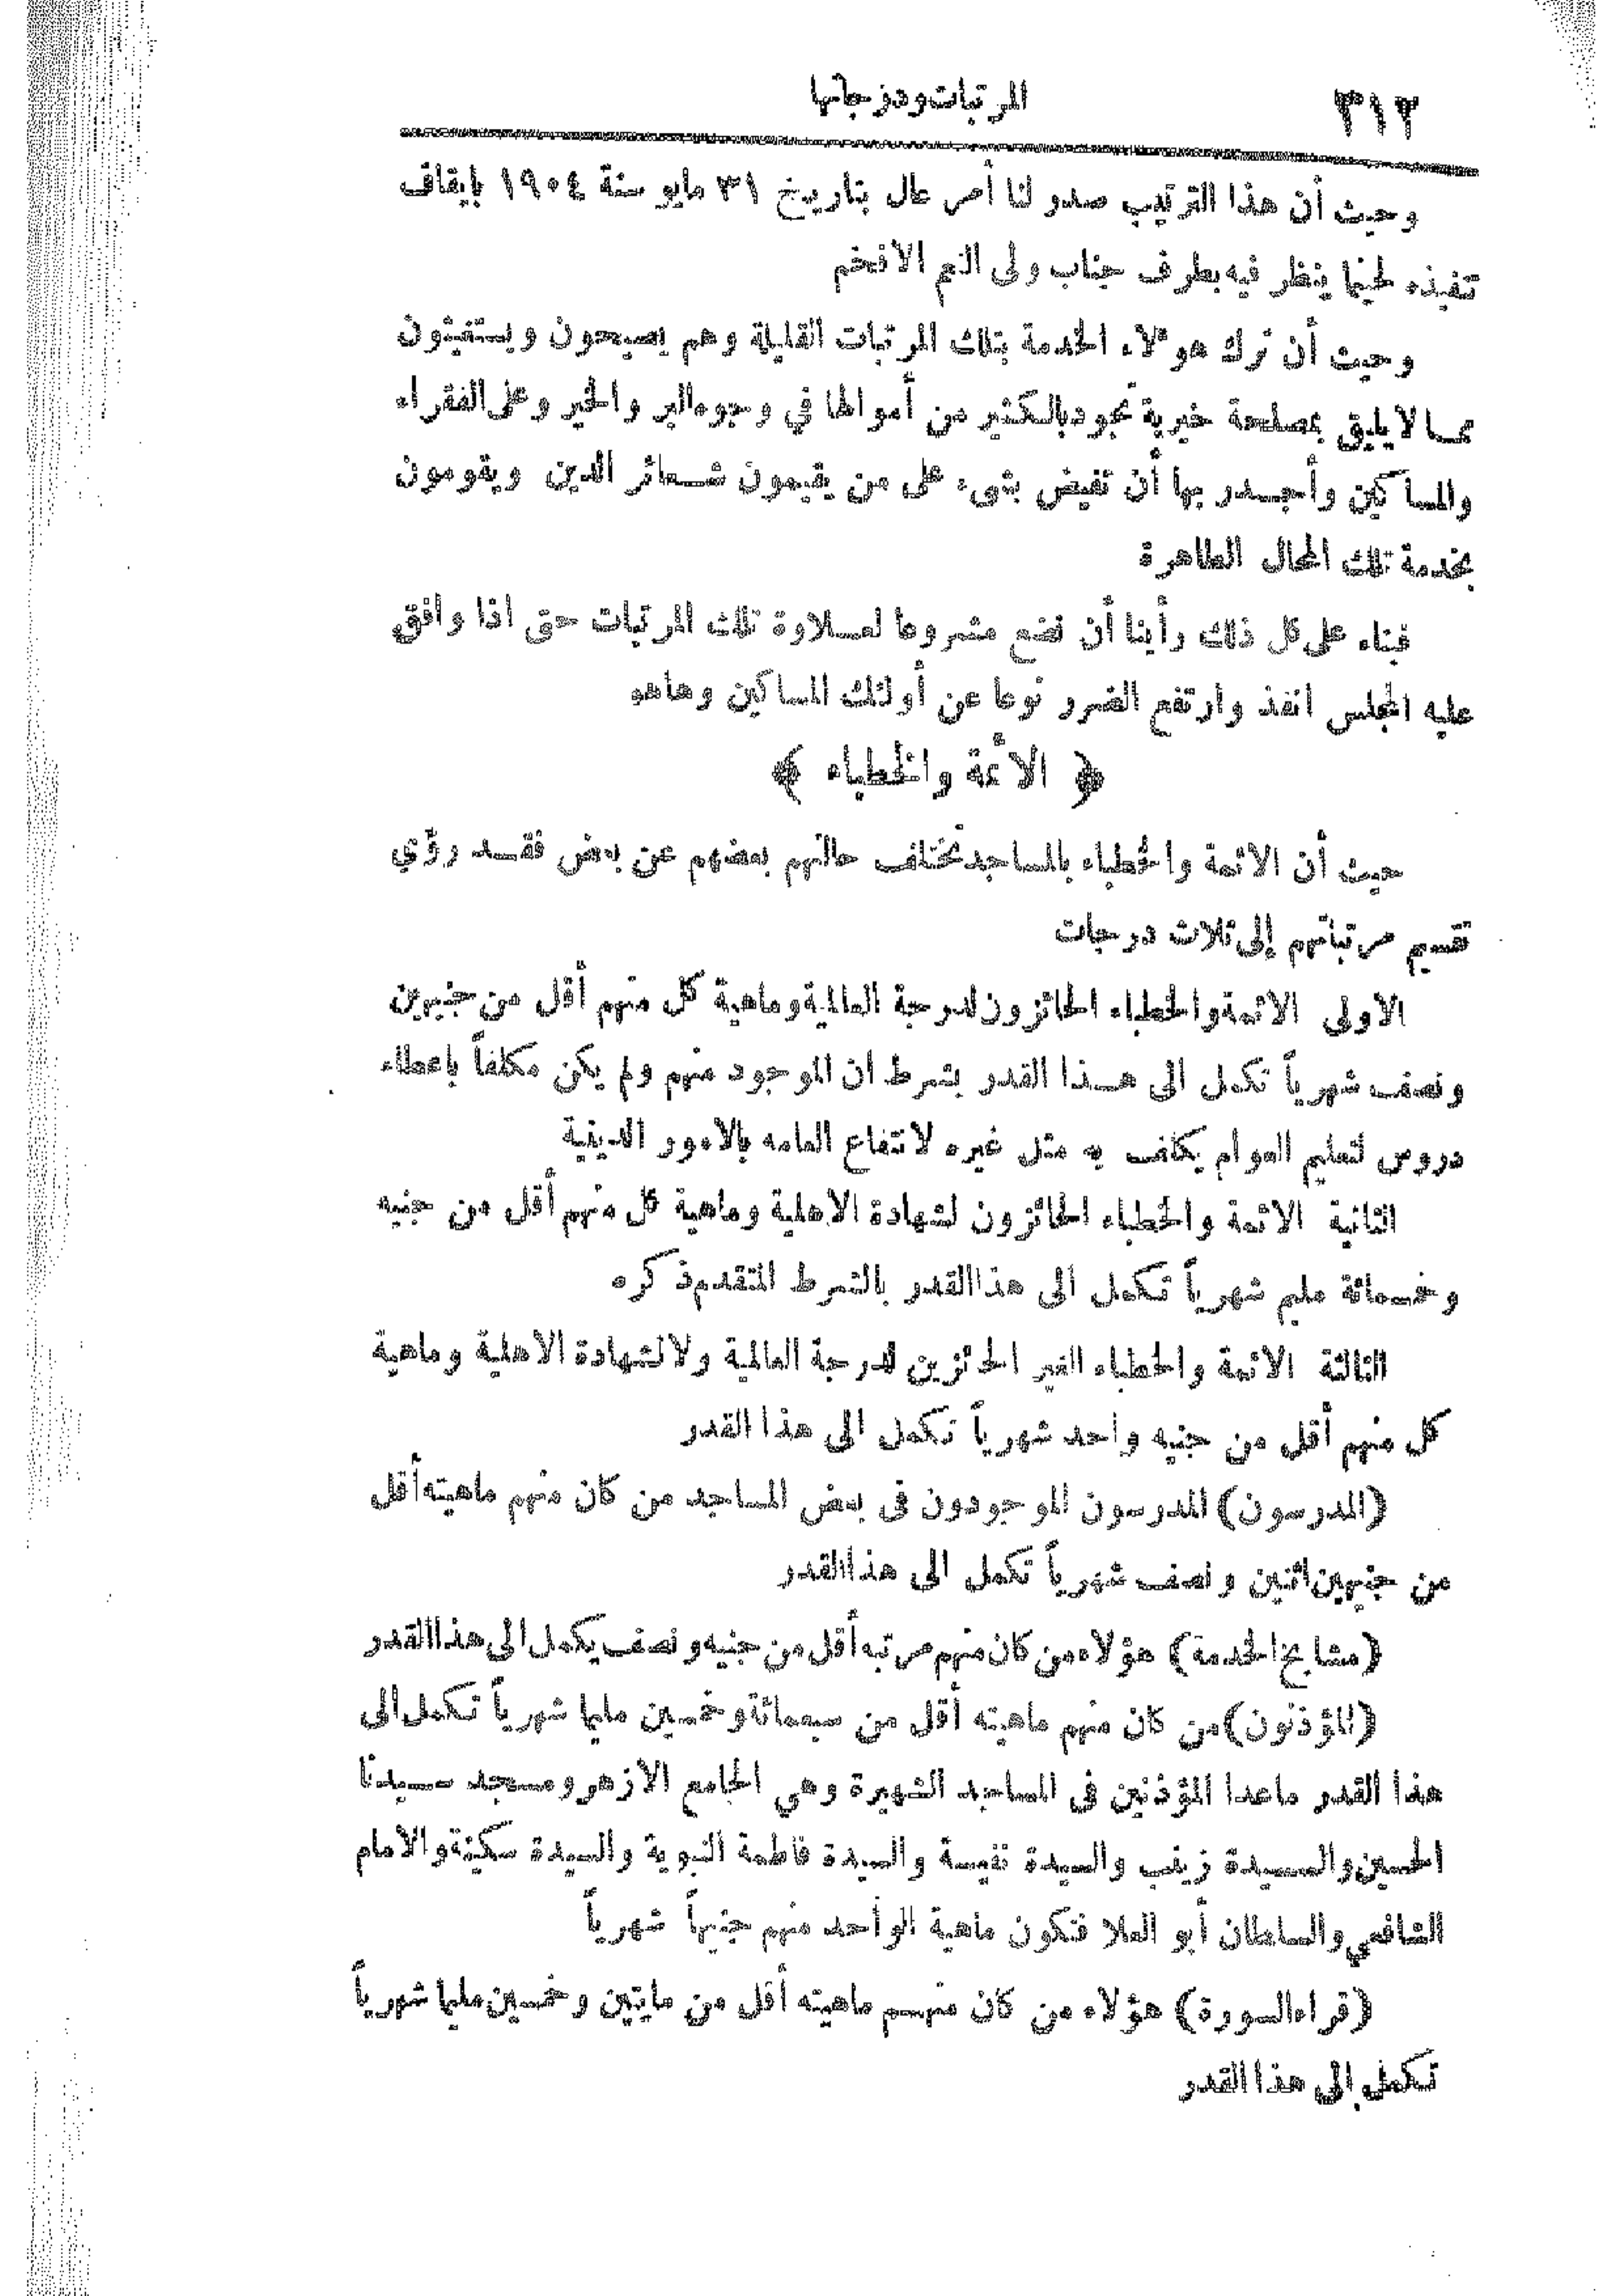 ٣١٢
المرتبات ودرجاتها
وحيث أن هذا الترتيب صدر لنا أمر عال بتاريخ ٣١ مايو سنة ١٩٠٤ بايقاف
تنفيذه لحينما ينظر فيه بطرف جناب ولى النعم الافخم
وحيث أن ترك هؤلاء الخدمة بتلك المرتبات القليلة وهم يصيحون ويستغيثون
مما لا يليق بمصلحة خيرية تجود بالكثير من أموالها في وجوه البر والخير وعلى الفقراء
والمساكين وأجدر بها أن تفيض بشىء على من يقيمون شعائر الدين ويقومون
بخدمة تلك المحال الطاهرة
فبناء على كل ذلك رأينا أن نضع مشروعا لعلاوة تلك المرتبات حتى اذا وافق
عليه المجلس انفذ وارتفع الضرر نوعا عن أولئك المساكين وهاهو
﴿ الأئمة والخطباء ﴾
حيث أن الائمة والخطباء بالمساجد تختلف حالتهم بعضهم عن بعض فقد رؤي
تقسيم مرتباتهم إلى ثلاث درجات
الاولى الائمة والخطباء الحائزون لدرجة العالمية وماهية كل منهم أقل من جنيهين
ونصف شهرياً تكمل الى هذا القدر بشرط ان الموجود منهم ولم يكن مكلفاً باعطاء
دروس لتعليم العوام يكلف به مثل غيره لانتفاع العامه بالامور الدينية
الثانية الائمة والخطباء الحائزون لشهادة الاهلية وماهية كل منهم أقل من جنيه
وخمسمائة مليم شهرياً تكمل الى هذا القدر بالشرط المتقدم ذكره
الثالثة الائمة والخطباء الغير الحائزين لدرجة العالمية ولا لشهادة الاهلية وماهية
كل منهم أقل من جنيه واحد شهرياً تكمل الى هذا القدر
(المدرسون) المدرسون الموجودون فى بعض المساجد من كان منهم ماهيته أقل
من جنيهين اثنين ونصف شهرياً تكمل الى هذا القدر
(مشايخ الخدمة) هؤلاء من كان منهم مرتبه أقل من جنيه ونصف يكمل الى هذا القدر
(المؤذنون) من كان منهم ماهيته أقل من سبعمائة وخمسين مليما شهرياً تكمل الى
هذا القدر ماعدا المؤذنين فى المساجد الشهيرة وهي الجامع الازهر ومسجد سيدنا
الحسين والسيدة زينب والسيدة نفيسة والسيدة فاطمة النبوية والسيدة سكينة والامام
الشافعي والسلطان أبو العلا فتكون ماهية الواحد منهم جنيهاً شهرياً
(قراء السورة) هؤلاء من كان منهم ماهيته أقل من مايتين وخمسين مليما شهرياً
تكمل إلى هذا القدر